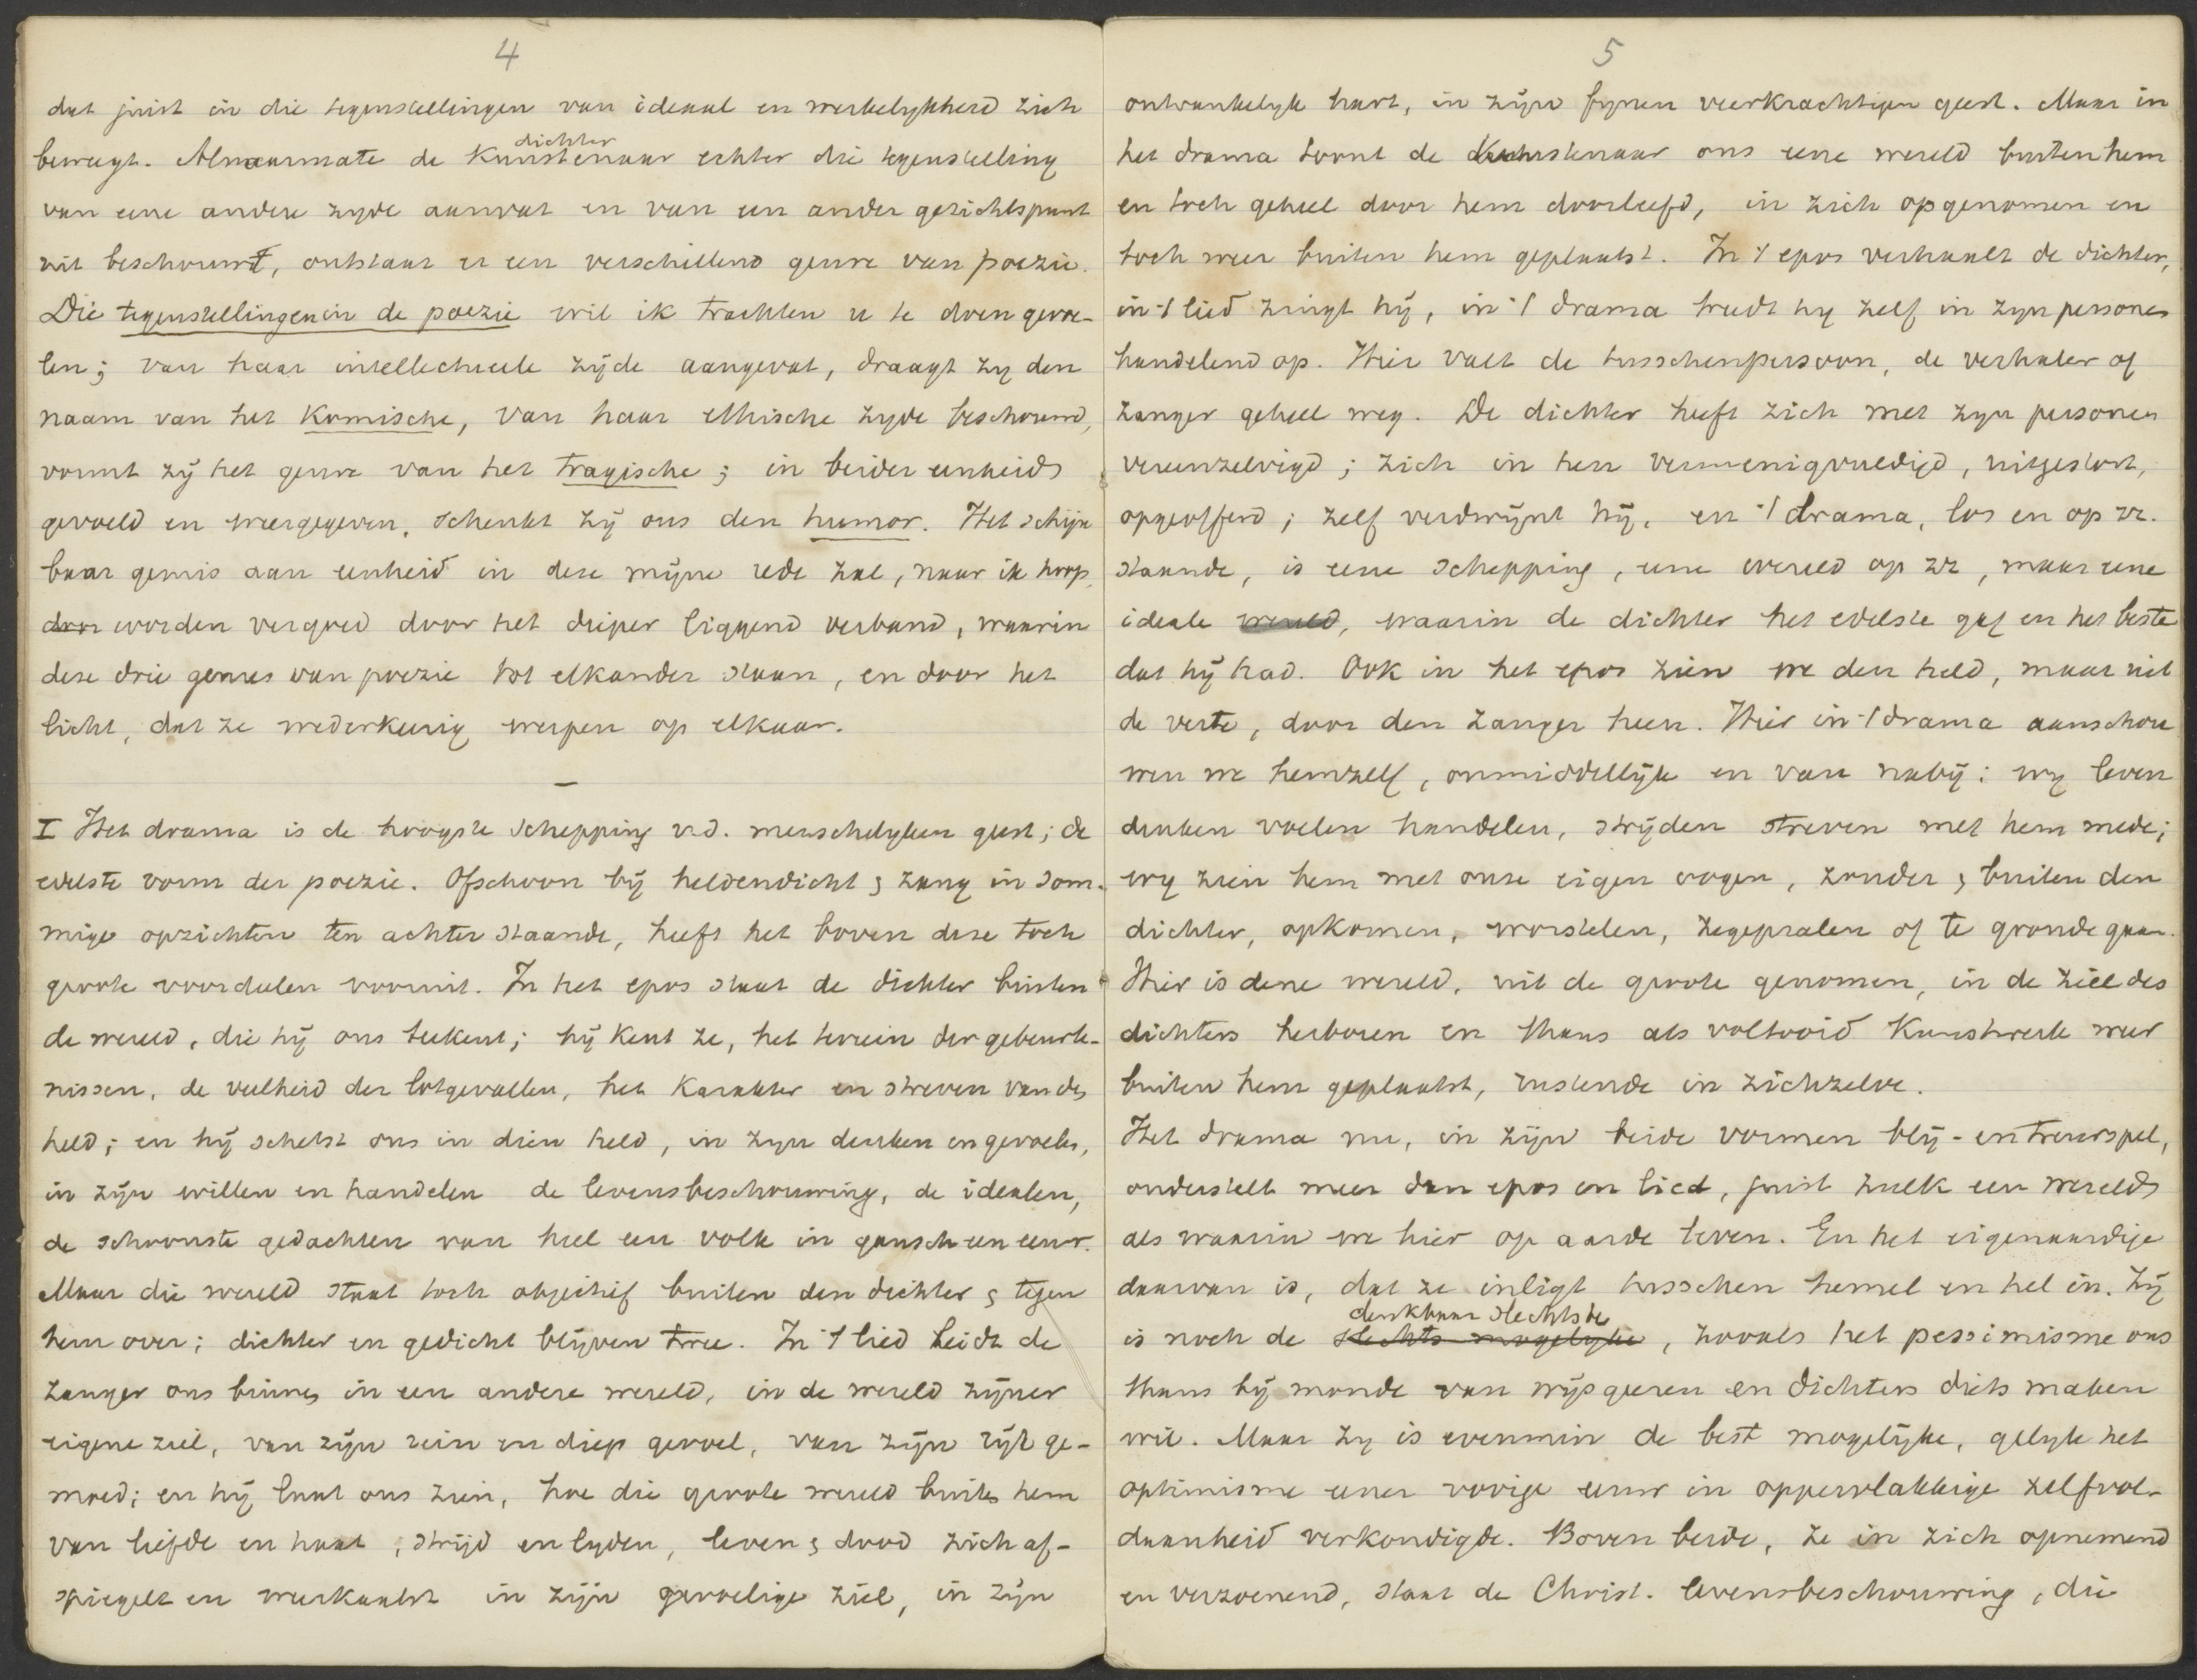 4
dat juist in die tegenstellingen van ideaal en werkelykheid zich
dichter
beweegt. Alnaarmate de Kunstenaar echter die tegenstelling
van eene andere zyde aanvat en van een ander gezichtspunt
uit beschouwt, ontstaat er een verschillend genre van poezie.
Die tegenstellingen in de poezie wil ik trachten u te doen gevoe-
len; van haar intellectueele zijde aangevat, draagt zy den
naam van het Komische, van haar ethische zyde beschouwd,
vormt zij het genre van het tragische; in beider eenheid
gevoeld en weergegeven, schenkt zij ons den humor. Het schijn
baar gemis aan eenheid in deze mijne rede zal, naar ik hoop,
door worden vergoed door het dieper liggend verband, waarin
deze drie genres van poezie tot elkander staan, en door het
licht, dat ze wederkeerig werpen op elkaar.
I Het drama is de hoogste schepping v.d. menschelyken geest; de
edelste vorm der poezie. Ofschoon bij heldendicht & zang in som-
mige opzichten ten achter staande, heeft het boven deze toch
groote voordeelen vooruit. In het epos staat de dichter buiten
de wereld, die hij ons teekent; hij kent ze, het terrein der gebeurte-
nissen, de veelheid der lotgevallen, het Karakter en streven van den
held; en hij schetst ons in dien held, in zyn denken en gevoelen,
in zijn willen en handelen de levensbeschouwing, de idealen,
de schoonste gedachten van heel een volk in gansch een eeuw.
Maar die wereld staat toch objectief buiten den dichter & tegen
hem over; dichter en gedicht blijven twee. In 't lied leidt de
zanger ons binnen in een andere wereld, in de wereld zijner
eigene ziel, van zijn rein en diep gevoel, van zijn rijk ge-
moed; en hij laat ons zien, hoe die groote wereld buiten hem
van liefde en haat, strijd en lyden, leven & dood zich af-
spiegelt en weerkaatst in zijn gevoelige ziel, in zijn
5
ontvankelyk hart, in zijn fijnen veerkrachtigen geest. Maar in
het drama toont de Kunstenaar ons eene wereld buiten hem
en toch geheel door hem doorleefd, in zich opgenomen en
toch weer buiten hem geplaatst. In 't epos verhaalt de dichter,
in 't lied zingt hij, in 't drama treedt hy zelf in zyn personen
handelend op. Hier valt de tusschenpersoon, de verhaler of
zanger geheel weg. De dichter heeft zich met zyn personen
vereenzelvigd; zich in hen vermenigvuldigd, uitgestort,
opgeofferd; zelf verdwijnt hij, en 't drama, los en op zz.
staande, is eene schepping, eene wereld op zz, maar eene
ideale wereld, waarin de dichter het edelste gaf en het beste
dat hij had. Ook in het epos zien we den held, maar uit
de verte, door den zanger heen. Hier in 't drama aanschou
wen we hemzelf, onmiddellijk en van nabij; wy leven
denken voelen handelen, strijden streven met hem mede;
wy zien hem met onze eigen oogen, zonder & buiten den
dichter, opkomen, worstelen, zegepralen of te gronde gaan.
Hier is dene wereld, uit de groote genomen, in de ziel des
dichters herboren en thans als voltooid Kunstwerk weer
buiten hem geplaatst, rustende in zichzelve.
Het drama nu, in zijn beide vormen blij- en treurspel,
onderstelt meer dan epos en lied, juist zulk een wereld
als waarin we hier op aarde leven. En het eigenaardige
daarvan is, dat ze inligt tusschen hemel en hel in. Zij
denkbaar slechtste
is noch de slechts mogelyke, zooals het pessimisme ons
thans bij monde van wijsgeeren en dichters diets maken
wil. Maar zy is evenmin de best mogelijke, gelyk het
optimisme eener vorige eeuw in oppervlakkige zelfvol-
daanheid verkondigde. Boven beide, ze in zich opnemend
en verzoenend, staat de Christ. levensbeschouwing, die